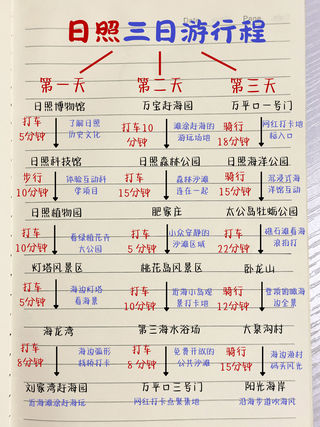 日照三日游行程
第一天 第二天 第三天
日照博物馆 万宝赶海园 万平口一号门
打车 了解日照 打车10 滩涂赶海的 骑行 网红打卡地
5分钟 历史文化 分钟 游玩场地 18分钟 标入口
日照科技馆 日照森林公园 日照海洋公园
步行 体验互动科 打车 森林沙滩 骑行 沉浸式海
10分钟 学项目 15分钟 连在一起 15分钟 洋馆互动
日照植物园 肥家庄 太公岛牡蛎公园
打车 看绿植花卉 打车 小众安静的 打车 礁石滩看海
10分钟 大公园 5分钟 沙滩区域 22分钟 浪拍打
灯塔风景区 桃花岛风景区 卧龙山
打车 海边灯塔 打车 近海小岛观 骑行 登顶俯瞰海
5分钟 看海景 10分钟 景打卡地 12分钟 边全景
海龙湾 第三海水浴场 大泉沟村
打车 海边弧形 打车 免费开放的 骑行 海边渔村
8分钟 栈桥打卡 8分钟 公共沙滩 15分钟 码头风光
刘家湾赶海园 万平口三号门 阳光海岸
近海滩赶海玩 网红打卡点聚集地 沿海步道吹海风